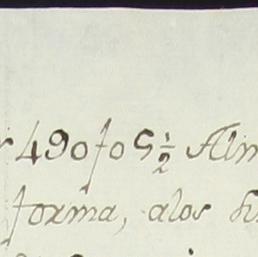 490fo 5½ Alm
forma, alos h